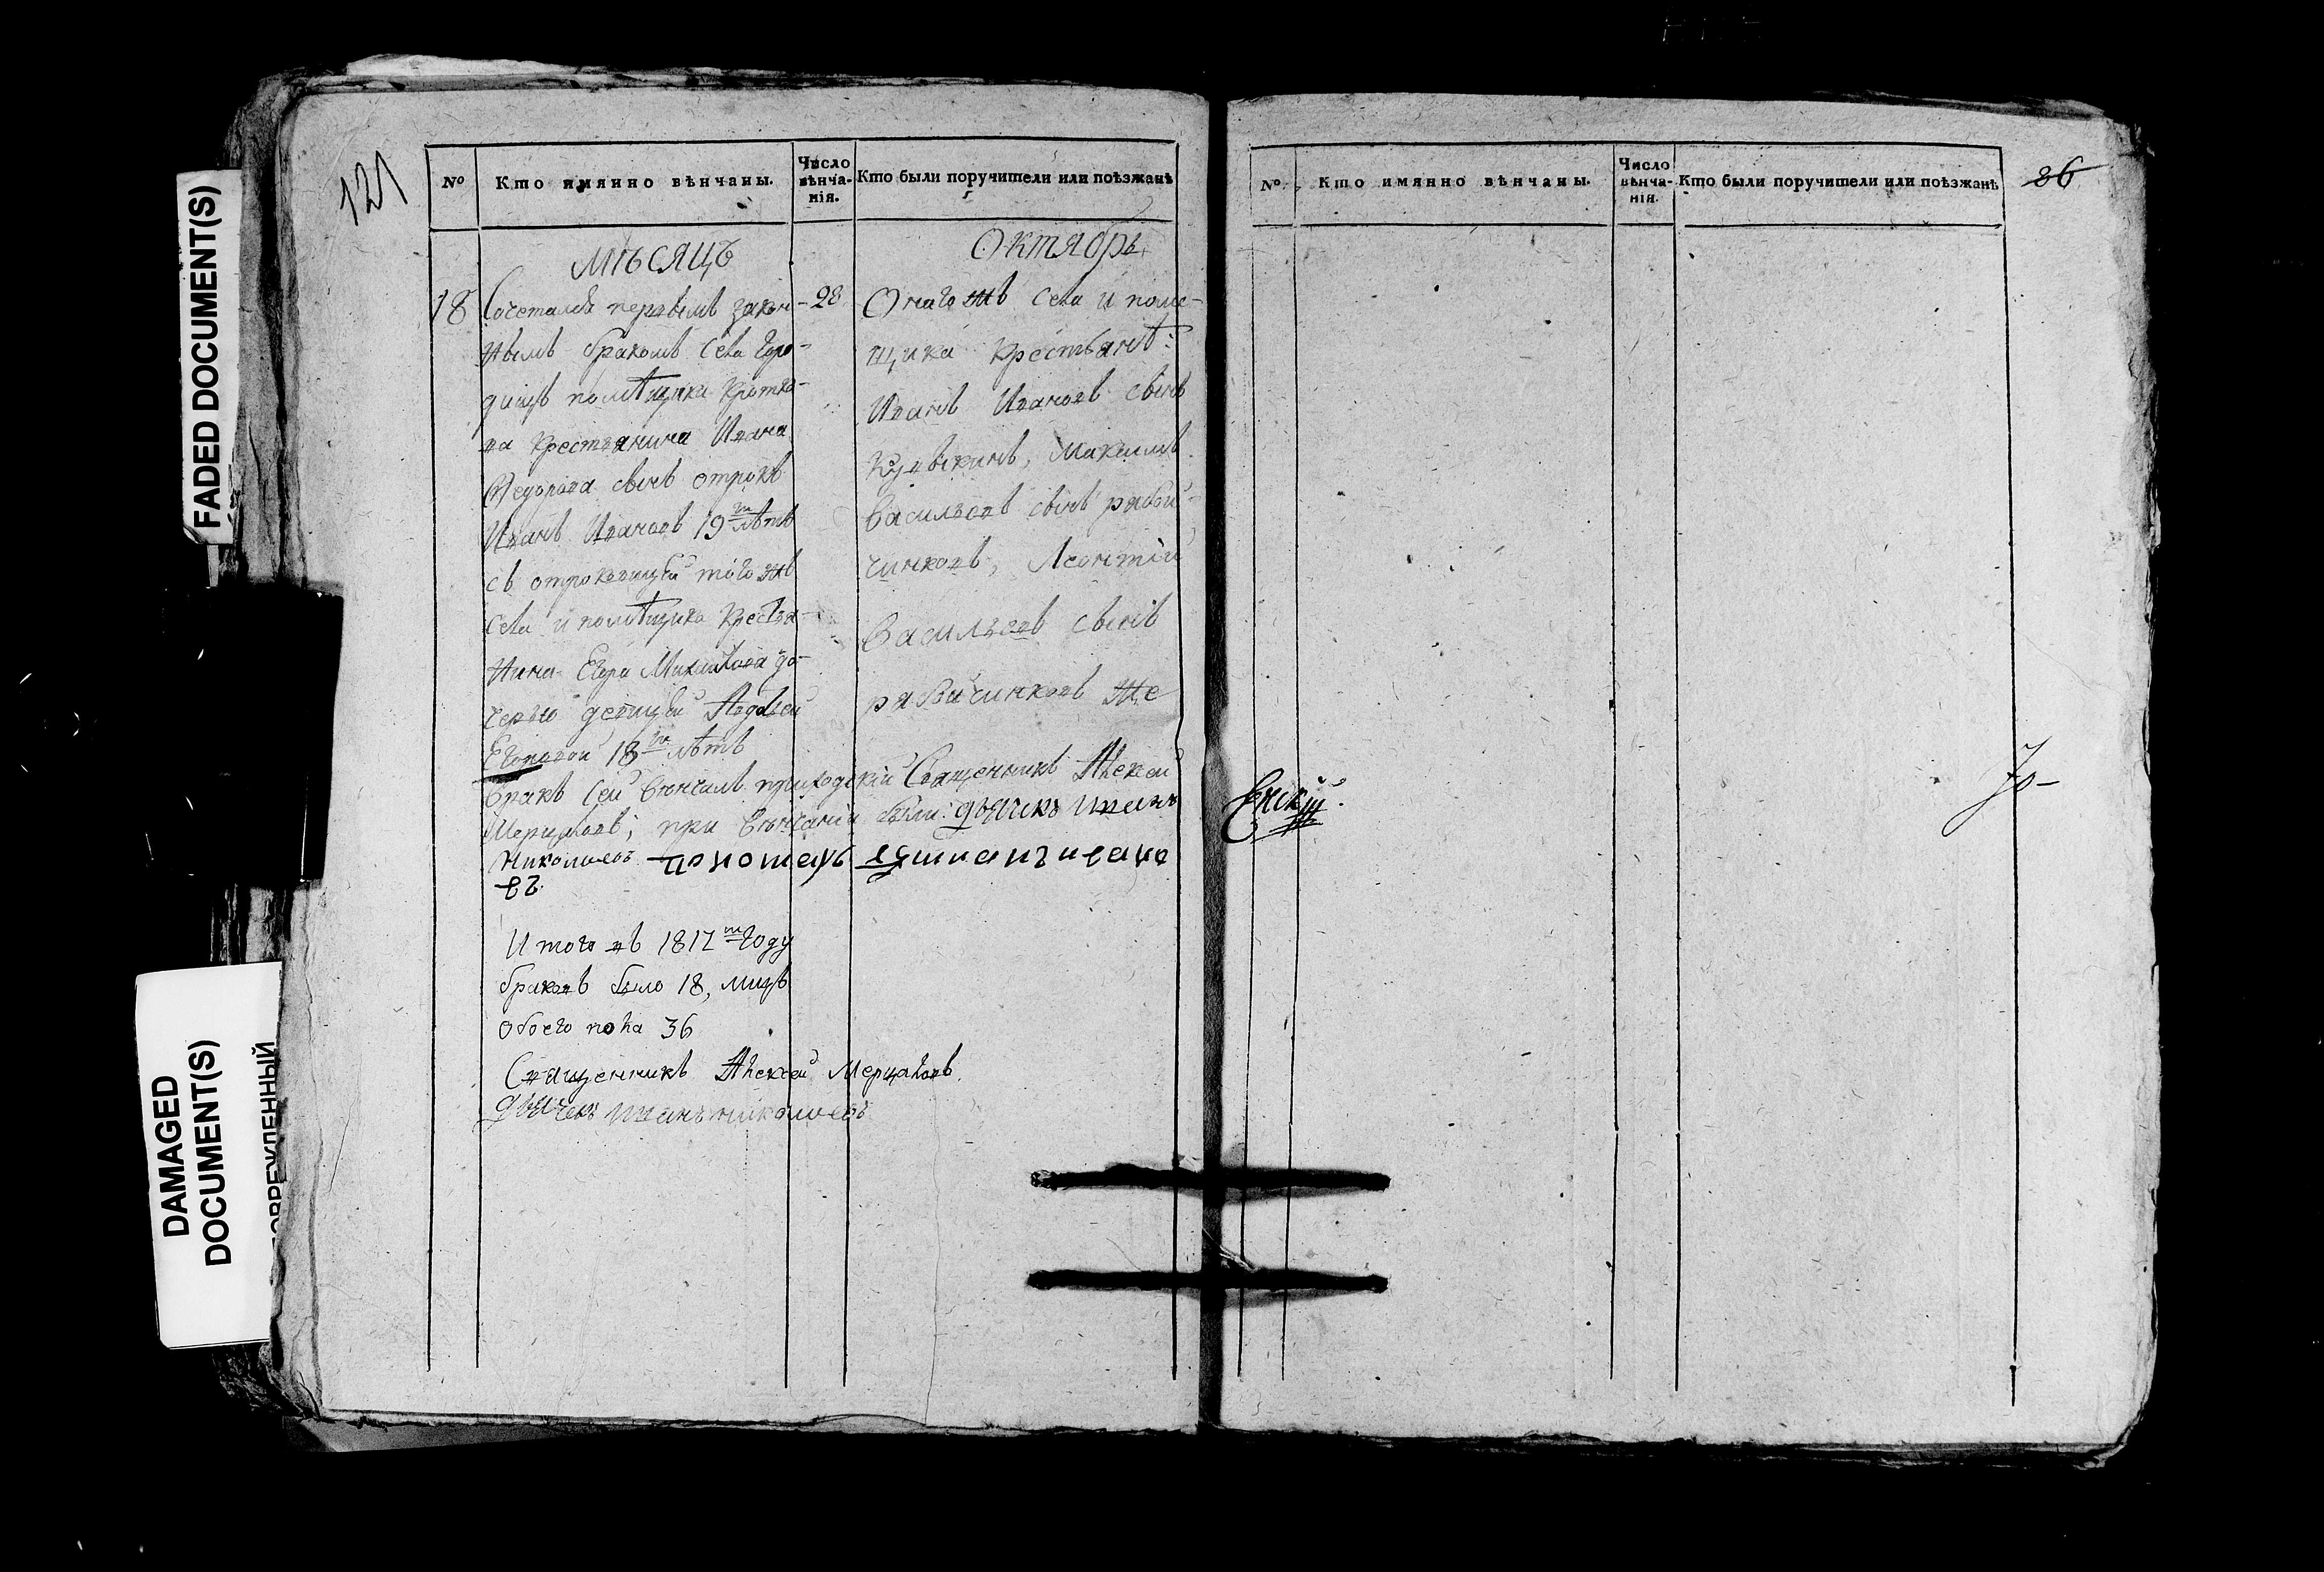 FADED DOCUMENT(S)
DAMAGED
DOCUMENT(S)
121
№ Кто имянно вѣнчаны. Число вѣнча-нія. Кто были поручители или поѣзжанѣ
мѣсяцъ Октябрь
18 Сочетался первымъ закон- 28
нымъ бракомъ села Горо-
дищъ помѣщика Кротко-
ва крестьянина Ивана
Федорова сынъ отрокъ
Иванъ Ивановъ 19ти лѣтъ
съ отроковицей того жъ
села и помѣщика крестья-
нина Егора Михайлова до-
черью девицей Авдотьей
Егоровой 18ти лѣтъ
Онаго жъ села и поме-
щика крестьянѣ:
Иванъ Ивановъ сынъ
Максимъ
Васильевъ сынъ рябой-
чинковъ, Леонтій
Васильевъ сынъ
рябойчинковъ же
Бракъ сей вѣнчалъ приходскій Священникъ Алексей
Мерцаловъ; при вѣнчаніи были: дьячикъ иванъ
николаевъ пономарь ивано
въ
Итого въ 1812м году
браковъ было 18, лицъ
обоего пола 36
Священникъ Алексей Мерцаловъ
дьячекъ иванъ николаевъ
№ Кто имянно вѣнчаны. Число вѣнча-нія. Кто были поручители или поѣзжанѣ
86